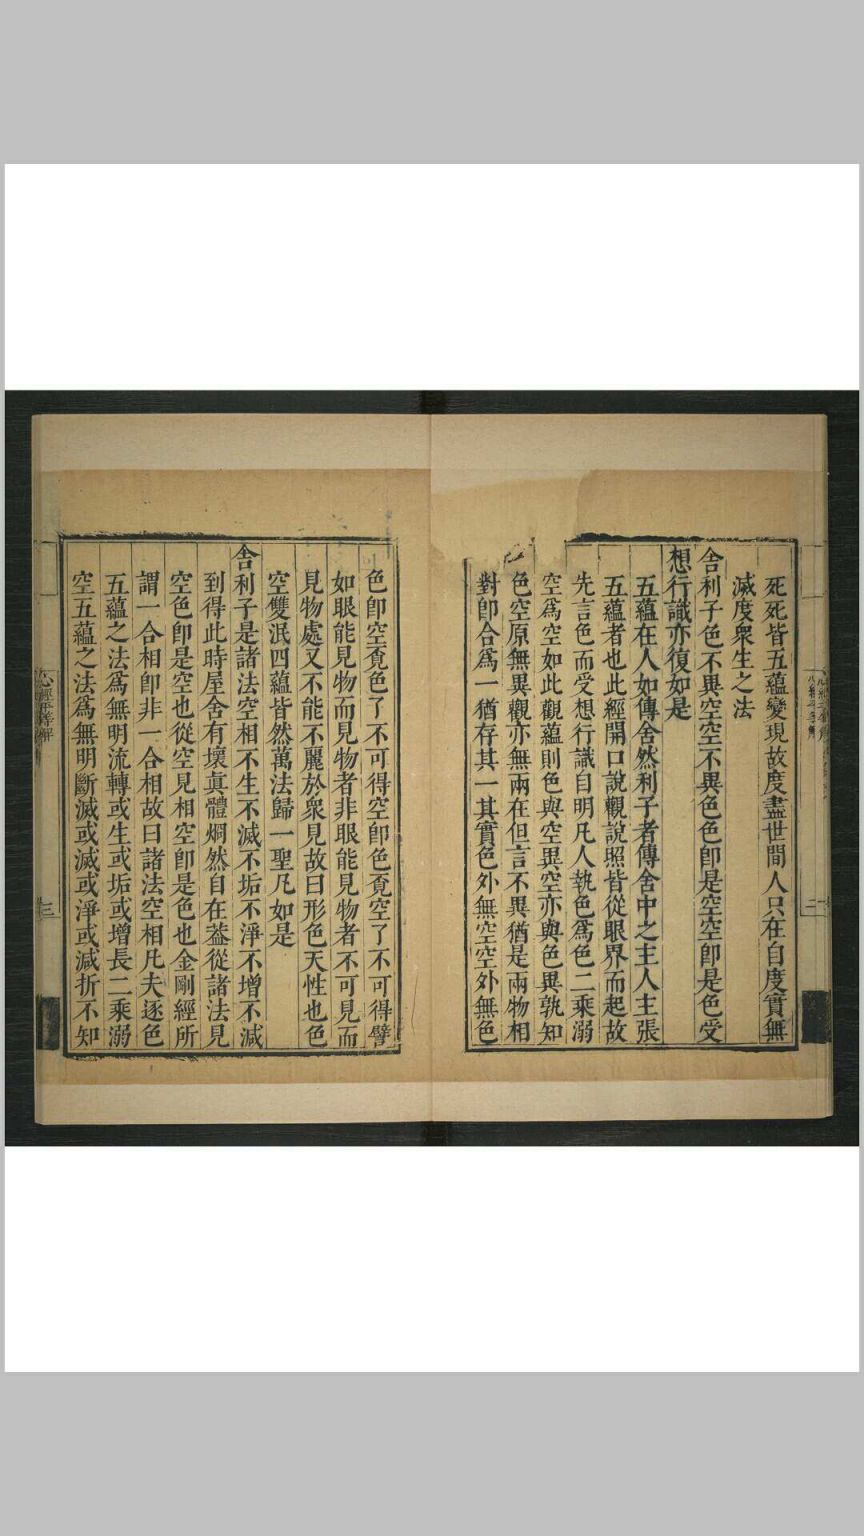 死死皆五蘊變現故度盡世間人只在自度實無
滅度衆生之法
舎利子色不異空空不異色色卽是空空卽是色受
想行識亦復如是
五蘊在人如傳舍然利子者傳舍中之主人主張
五蘊者也此經開口說觀說照皆從眼界而起故
先言色而受想行識自明凡人執色爲色二乘溺
空爲空如此觀蘊則色與空異空亦與色異孰知
色空原無異觀亦無兩在但言不異猶是兩物相
對卽合爲一猶存其一其實色外無空空外無色
色卽空覔色了不可得空卽色覔空了不可得譬
如眼能見物而見物者非眼能見物者不可見而
見物處又不能不麗於衆見故曰形色天性也色
空雙泯四蘊皆然萬法歸一聖凡如是
舎利子是諸法空相不生不滅不垢不淨不增不減
到得此時屋舍有壞眞體烱然自在葢從諸法見
空色卽是空也從空見相空卽是色也金剛經所
謂一合相卽非一合相故曰諸法空相凡夫逐色
五蘊之法爲無明流轉或生或垢或增長二乘溺
空五蘊之法爲無明斷滅或滅或淨或減折不知
心經
三